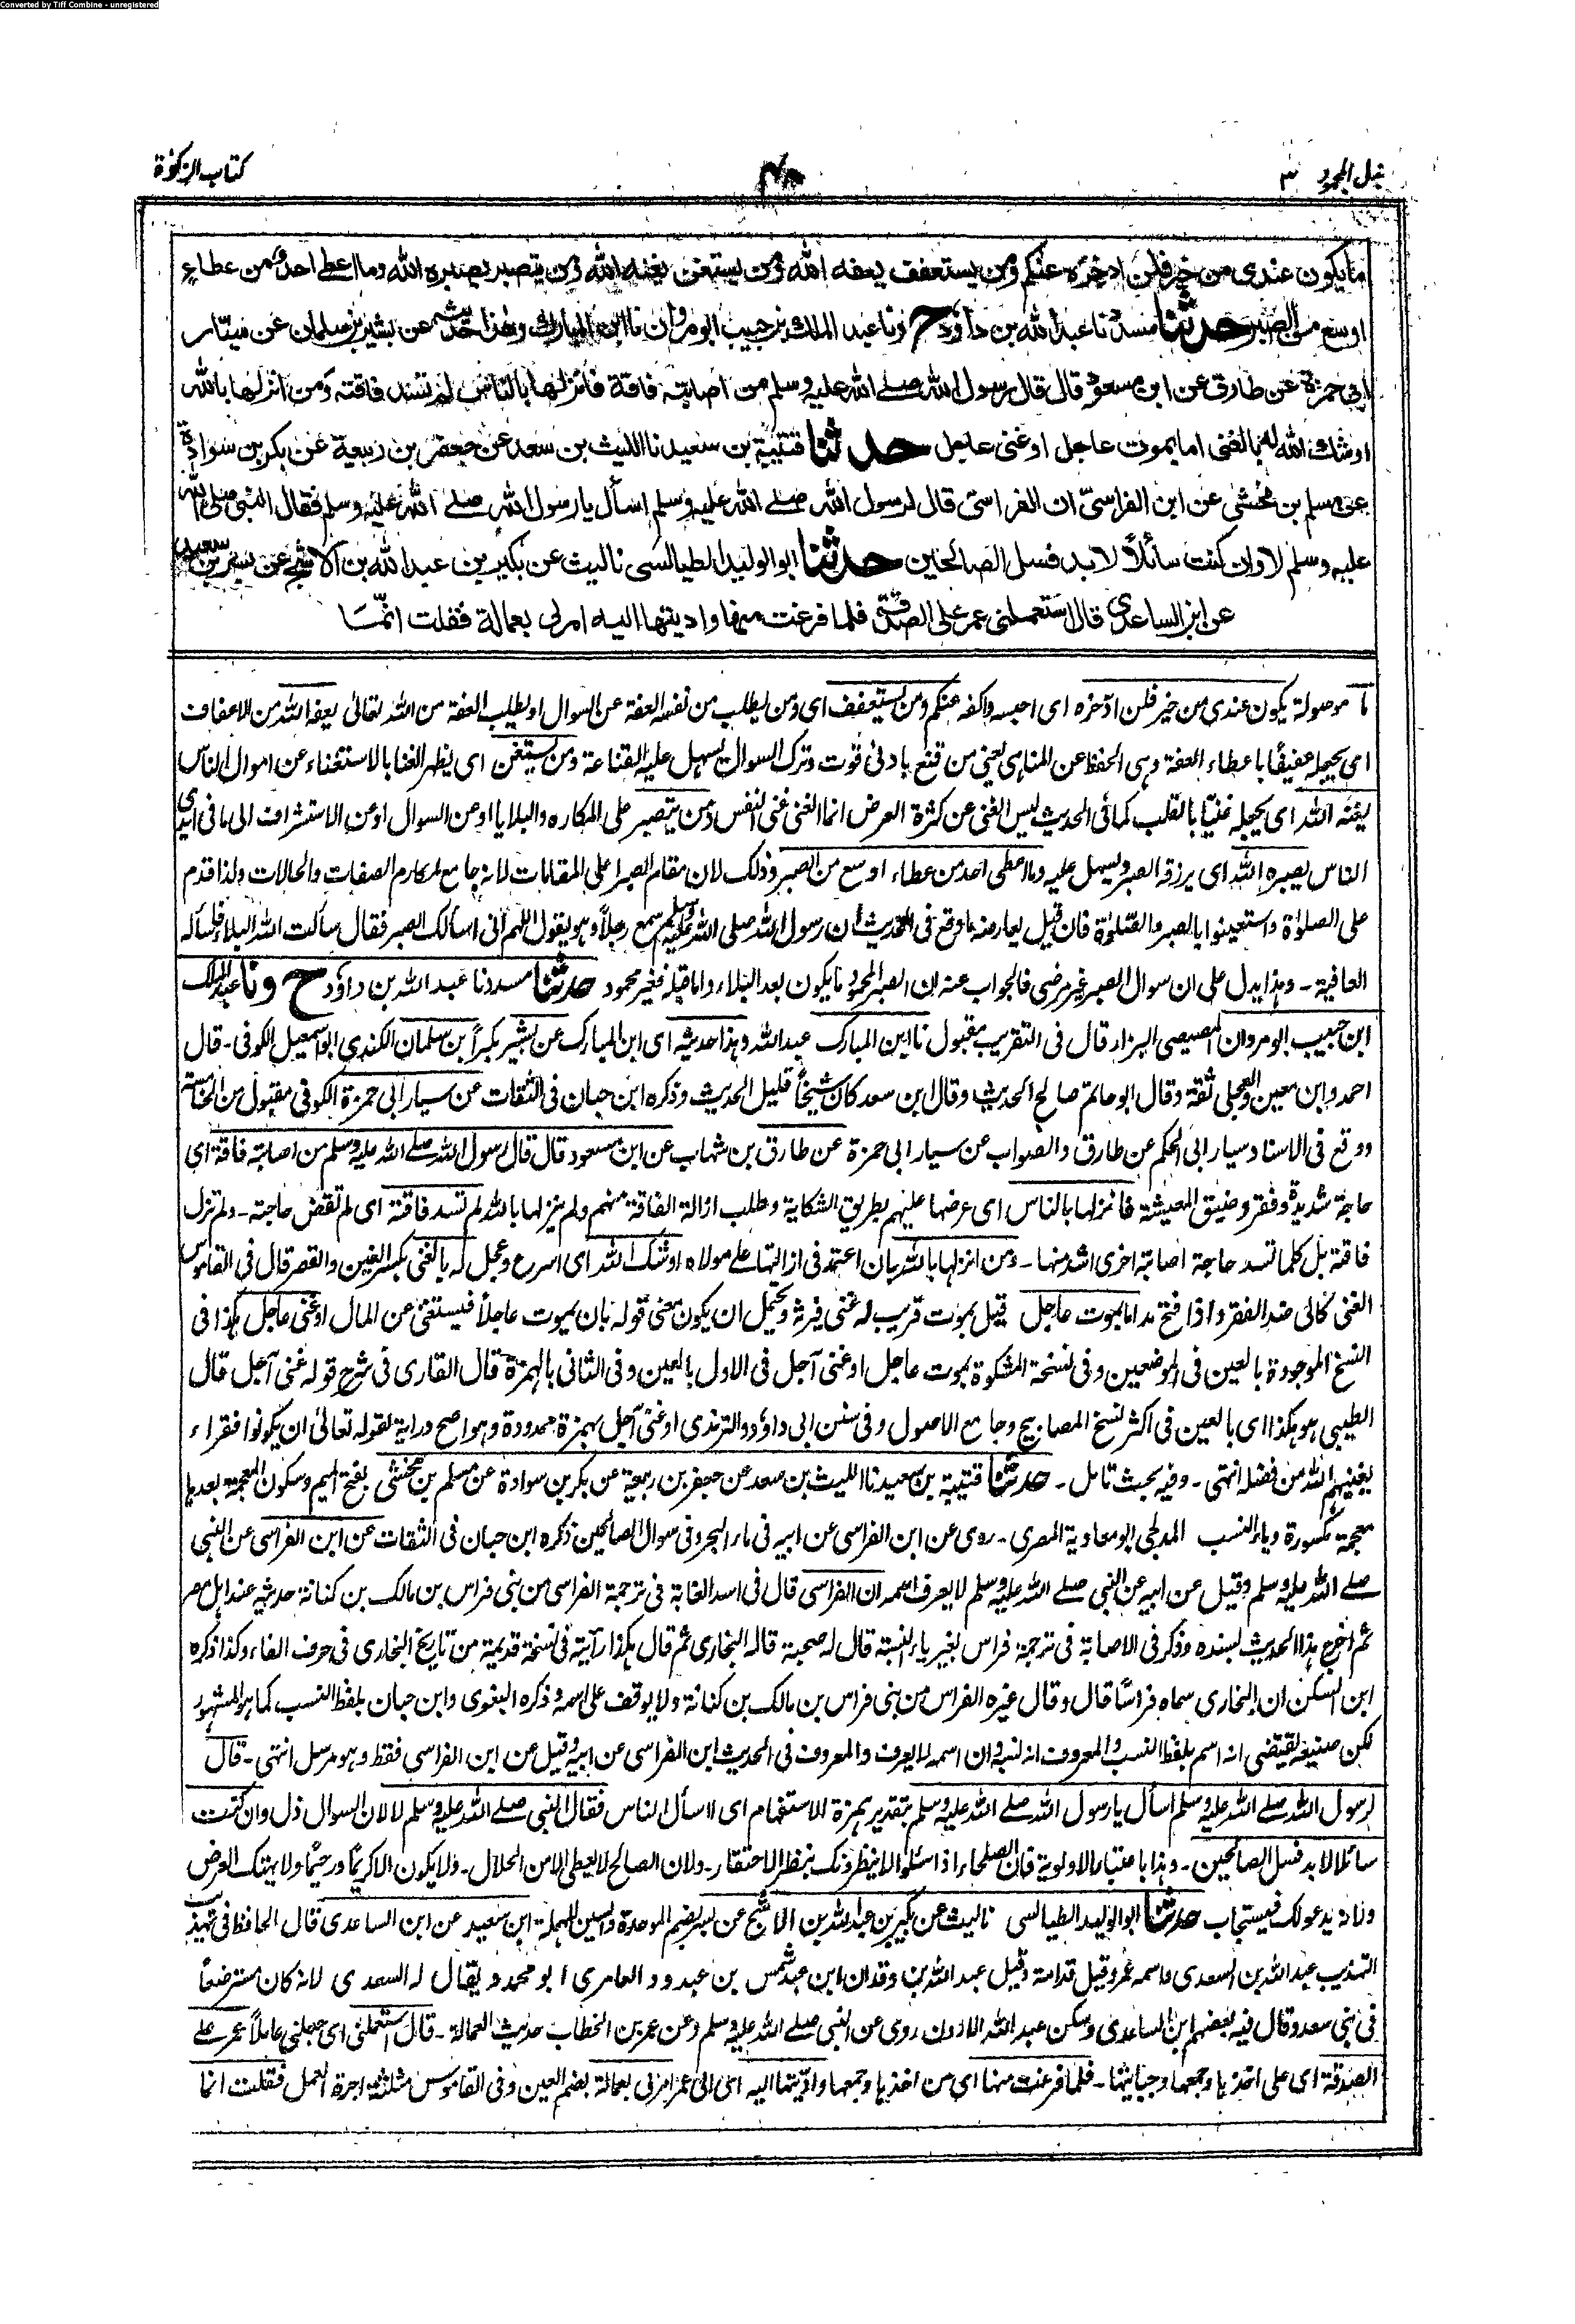 Converted by Tiff Combine - unregistered
بذل المجهود ٣
كتاب الزكوٰة
ما يكون عندى من خير فلن ادخره عنكم ومن يستعفف يعفه الله ومن يستغن يغنه الله ومن يتصبر يصبره الله وما اعطى احد من عطاء
اوسع من الصبر حدثنا مسدد نا عبد الله بن داؤد ح ونا عبد الملك بن حبيب ابو مروان نا ابن المبارك وهذا حديثه عن بشير بن سلمان عن سيّار
ابى حمزة عن طارق عن ابن مسعود قال قال رسول الله صلى الله عليه وسلم من اصابته فاقة فانزلها بالناس لم تسد فاقته ومن انزلها بالله
اوشك الله له بالغنى اما بموت عاجل او غنى عاجل حدثنا قتيبة بن سعيد نا الليث بن سعد عن جعفر بن ربيعة عن بكر بن سوادة
عن مسلم بن مخشى عن ابن الفراسىّ ان الفراسى قال لرسول الله صلے الله عليه وسلم اسأل يا رسول الله صلے الله عليه وسلم فقال النبى صلى الله
عليه وسلم لا وان كنت سائلاً لا بد فسل الصالحين حدثنا ابو الوليد الطيالسى نا ليث عن بكير بن عبد الله بن الاشج عن بسر بن سعيد
عن ابن الساعدى قال استعملنى عمر على الصدقة فلما فرغت منها واديتها اليه امر لى بعمالة فقلت انّما
ما موصولة يكون عندى من خير فلن ادخره اى احبسه واكفه عنكم ومن يستعفف اى ومن يطلب من نفسه العفة عن السوال او يطلب العفة من الله تعالى يعفه الله من الاعفاف
اى يجعله عفيفًا باعطاء العفة وهى الحفظ عن المناهى يعنى من قنع بادنى قوت وترك السوال يسهل عليه القناعة ومن يستغن اى يظهر الغنا بالاستغناء عن اموال الناس
يغنه الله اى يجعله غنيًا بالقلب كما فى الحديث ليس الغنى عن كثرة العرض انما الغنى غنى النفس ومن يتصبر على المكاره والبلايا او عن السوال او عن الاستشراف الى ما فى ايدى
الناس يصبره الله اى يرزقه الصبر ويسهل عليه وما اعطى احد من عطاء اوسع من الصبر وذلك لان مقام الصبر اعلى المقامات لانه جامع لمكارم الصفات والحالات ولذا قدم
على الصلوٰة واستعينوا بالصبر والصلوٰة فان قيل يعارضه ما وقع فى الحديث ان رسول الله صلى الله عليه وسلم سمع رجلاً وهو يقول اللهم انى اسألك الصبر فقال سألت الله البلاء فاسأله
العافية - وهذا يدل على ان سوال الصبر غير مرضى فالجواب عنه ان الصبر المحمود ما يكون بعد البلاء واما قبله فغير محمود حدثنا مسدد نا عبد الله بن داؤد ح ونا عبد الملك
ابن حبيب ابو مروان المصيصى البزار قال فى التقريب مقبول نا ابن المبارك عبد الله وهذا حديثه اى ابن المبارك عن بشير بكبراً بن سلمان الكندى ابو اسمعيل الكوفى - قال
احمد وابن معين والعجلى ثقة وقال ابو حاتم صالح الحديث وقال ابن سعد كان شيخًا قليل الحديث وذكره ابن حبان فى الثقات عن سيار ابى حمزة الكوفى مقبول من الخامسة
ووقع فى الاسناد سيار ابى الحكم عن طارق والصواب عن سيار ابى حمزة عن طارق بن شهاب عن ابن مسعود قال قال رسول الله صلے الله عليه وسلم من اصابته فاقة اى
حاجة شديدة وفقر وضيق المعيشة فانزلها بالناس اى عرضها عليهم بطريق الشكاية وطلب ازالة الفاقة منهم ولم ينزلها بالله لم تسد فاقته اى لم تقض حاجته - ولم تزل
فاقته بل كلما تسد حاجة اصابته اخرى اشد منها - ومن انزلها بالله بان اعتمد فى ازالتها على مولاه اوشك الله اى اسرع وعجل له بالغنى بكسر الغين والقصر قال فى القاموس
الغنى كالى ضد الفقر واذا فتح مد اما بموت عاجل قيل بموت قريب له غنى فيرثه ويحتمل ان يكون معنى قوله بان يموت عاجلاً فيستغنى عن المال او غنى عاجل هكذا فى
النسخ الموجودة بالعين فى الموضعين وفى نسخة المشكوة بموت عاجل او غنى آجل فى الاول بالعين وفى الثانى بالهمزة قال القارى فى شرح قوله غنى آجل قال
الطيبى هو هكذا اى بالعين فى اكثر نسخ المصابيح وجامع الاصول وفى سنن ابى داؤد والترمذى او غنى آجل بهمزة ممدودة وهو اصح دراية لقوله تعالى ان يكونوا فقراء
يغنيهم الله من فضله انتهى - وفيه بحث تامل - حدثنا قتيبة بن سعيد نا الليث بن سعد عن جعفر بن ربيعة عن بكر بن سوادة عن مسلم بن مخشى بفتح الميم وسكون المعجمة بعدها
معجمة مكسورة وياء النسب المدلجى ابو معاوية المصرى - روى عن ابن الفراسى عن ابيه فى ماء البحر وفى سوال الصالحين ذكره ابن حبان فى الثقات عن ابن الفراسى عن النبى
صلے الله عليه وسلم وقيل عن ابيه عن النبى صلے الله عليه وسلم لا يعرف اسمه ان الفراسى قال فى اسد الغابة فى ترجمة الفراسى من بنى فراس بن مالك بن كنانة حديثه عند اهل مصر
ثم اخرج هذا الحديث بسنده وذكر فى الاصابة فى ترجمة فراس بغير ياء النسبة قال له صحبة قاله البخارى ثم قال هكذا رأيته فى نسخة قديمة من تاريخ البخارى فى حرف الفاء وكذا ذكره
ابن السكن ان البخارى سماه فراسًا قال وقال غيره الفراس من بنى فراس بن مالك بن كنانة ولا يوقف على اسمه وذكره البغوى وابن حبان بلفظ النسب كما هو المشهور
لكن صنيعه يقتضى انه اسم بلفظ النسب والمعروف انه نسبه وان اسمه لا يعرف والمعروف فى الحديث ابن الفراسى عن ابيه وقيل عن ابن الفراسى فقط وهو مرسل انتهى - قال
لرسول الله صلے الله عليه وسلم اسأل يا رسول الله صلے الله عليه وسلم بتقدير همزة الاستفهام اى ااسأل الناس فقال النبى صلے الله عليه وسلم لا لان السوال ذل وان كنت
سائلا لا بد فسل الصالحين - وهذا باعتبار الاولوية فان الصلحاء اذا سئلوا لا ينظرونك بنظر الاحتقار - ولان الصالح لا يعطى الا من الحلال - ولا يكون الا كريمًا ورحيمًا ولا يهتك العرض
ولانه يدعو لك فيستجاب حدثنا ابو الوليد الطيالسى نا ليث عن بكير بن عبد الله بن الاشج عن بسر بضم الموحدة والسين المهملة ابن سعيد عن ابن الساعدى قال الحافظ فى تهذيب
التهذيب عبد الله بن السعدى واسمه عمرو وقيل قدامة وقيل عبد الله بن وقدان ابن عبد شمس بن عبد ود العامرى ابو محمد ويقال له السعدى لانه كان مسترضعًا
فى بنى سعد وقال فيه بعضهم ابن الساعدى وسكن عبد الله الاردن روى عن النبى صلے الله عليه وسلم وعن عمر بن الخطاب حديث العمالة - قال استعملنى اى جعلنى عاملاً عمر على
الصدقة اى على اخذها وجمعها وجبايتها - فلما فرغت منها اى من اخذها وجمعها واديتها اليه اى الى عمر امر لى بعمالة بضم العين وفى القاموس مثلثة اجرة العمل فقلت انما